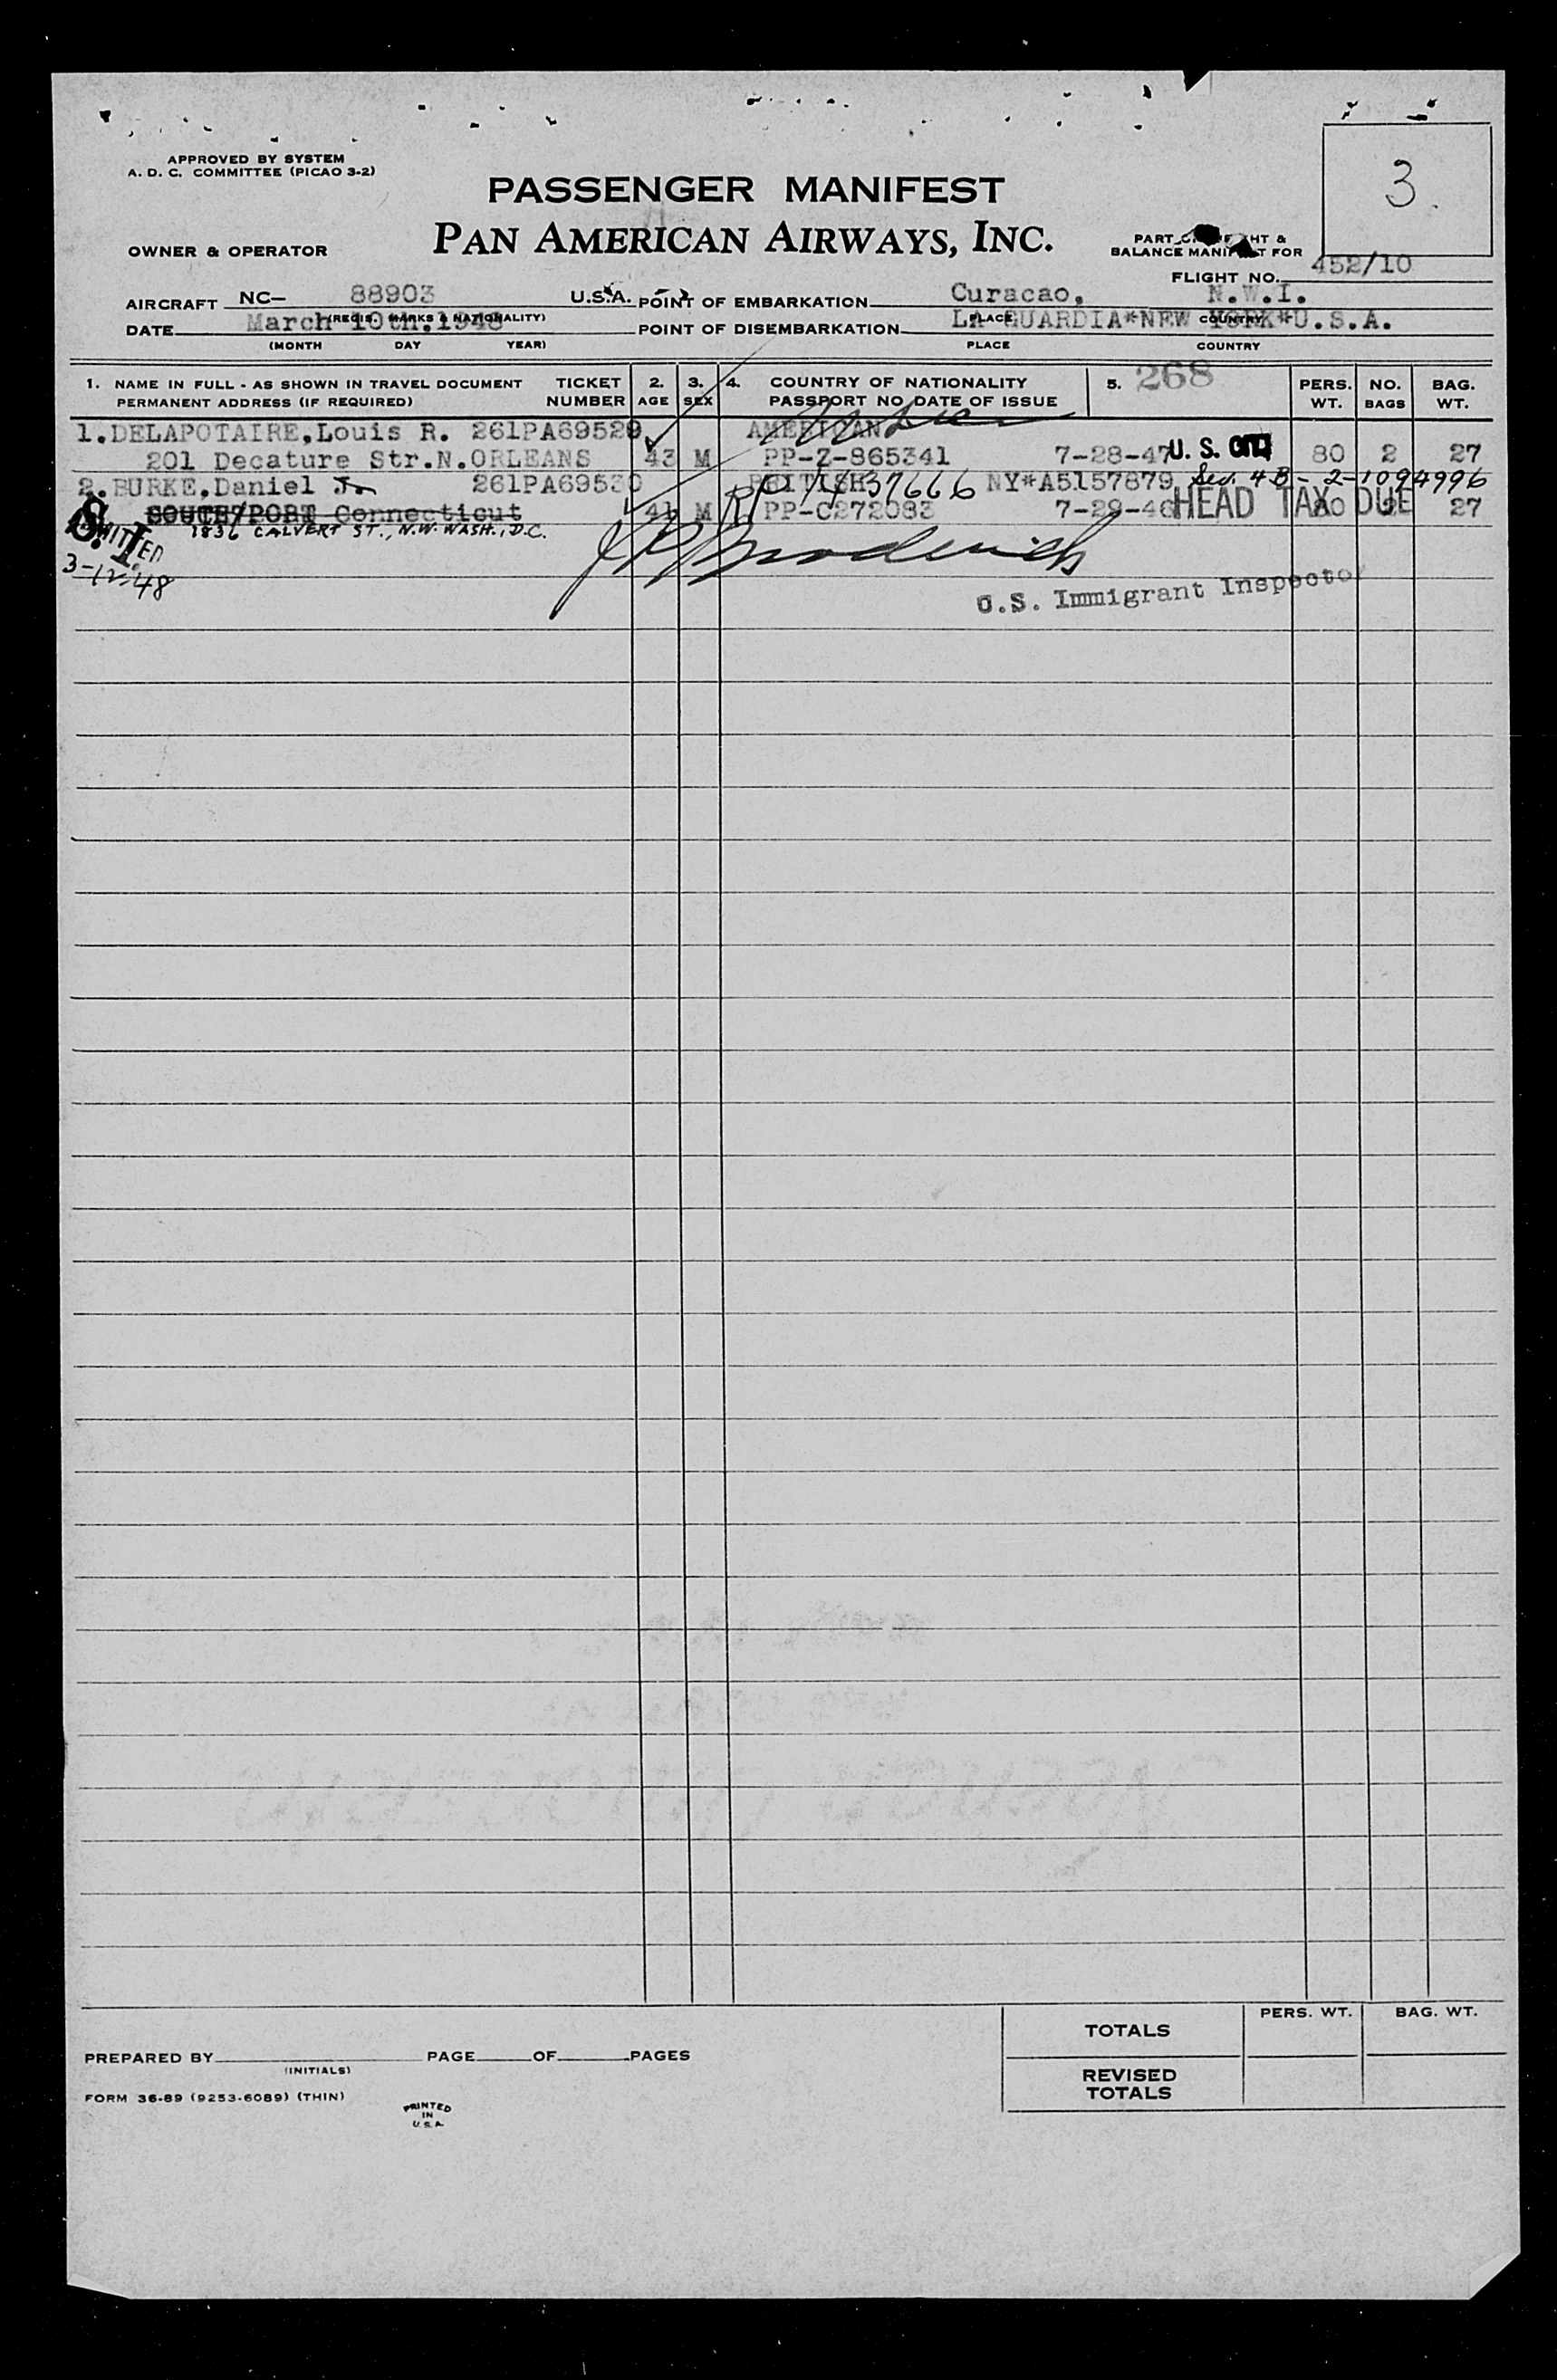 APPROVED BY SYSTEM
A. D. C. COMMITTEE (PICAO 3-2)
3.
PASSENGER MANIFEST
PAN AMERICAN AIRWAYS, INC.
OWNER & OPERATOR
BALANCE MANIFEST FOR
FLIGHT NO. 452/10
AIRCRAFT NC- 88903 U.S.A. POINT OF EMBARKATION Curacao, N.W.I.
(REGIS. MARKS & NATIONALITY) PLACE COUNTRY
DATE March 10th.1948 POINT OF DISEMBARKATION LA GUARDIA*NEW YORK*U.S.A.
(MONTH DAY YEAR) PLACE COUNTRY
1. NAME IN FULL - AS SHOWN IN TRAVEL DOCUMENT TICKET 2. 3. 4. COUNTRY OF NATIONALITY 5. 268 PERS. NO. BAG.
PERMANENT ADDRESS (IF REQUIRED) NUMBER AGE SEX PASSPORT NO DATE OF ISSUE WT. BAGS WT.
1.DELAPOTAIRE,Louis R. 261PA69529 AMERICAN
201 Decature Str.N.ORLEANS 43 M PP-Z-865341 7-28-47 U. S. 80 2 27
2.BURKE,Daniel Jr 261PA69530 BRITISH NY*A5157879 Sec. 4 B - 2-1094996
SOUTH/PORT Connecticut 41 M PP-C272083 7-29-46 HEAD TAX DUE 27
1836 CALVERT ST., N.W. WASH., D.C.
S. I.
ADMITTED
3-12-48
U.S. Immigrant Inspector
TOTALS PERS. WT. BAG. WT.
PREPARED BY PAGE OF PAGES
(INITIALS)
REVISED
TOTALS
FORM 36-89 (9253-6089) (THIN)
PRINTED
IN
U.S.A.